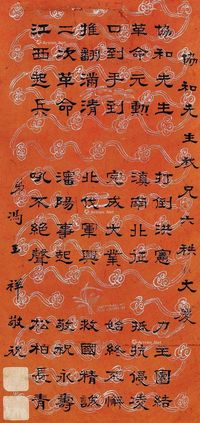 協和先生兄六秩大慶
協和先生
革命元勳
口到手到
推翻滿清
二次革命
江西起兵
打倒洪憲
滇南北征
完成大業
北伐軍興
瀋陽事起
吼不絕聲
力主團結
抗
始終不懈
救國精誠
敬祝永壽
松柏長青
弟馮玉祥敬祝